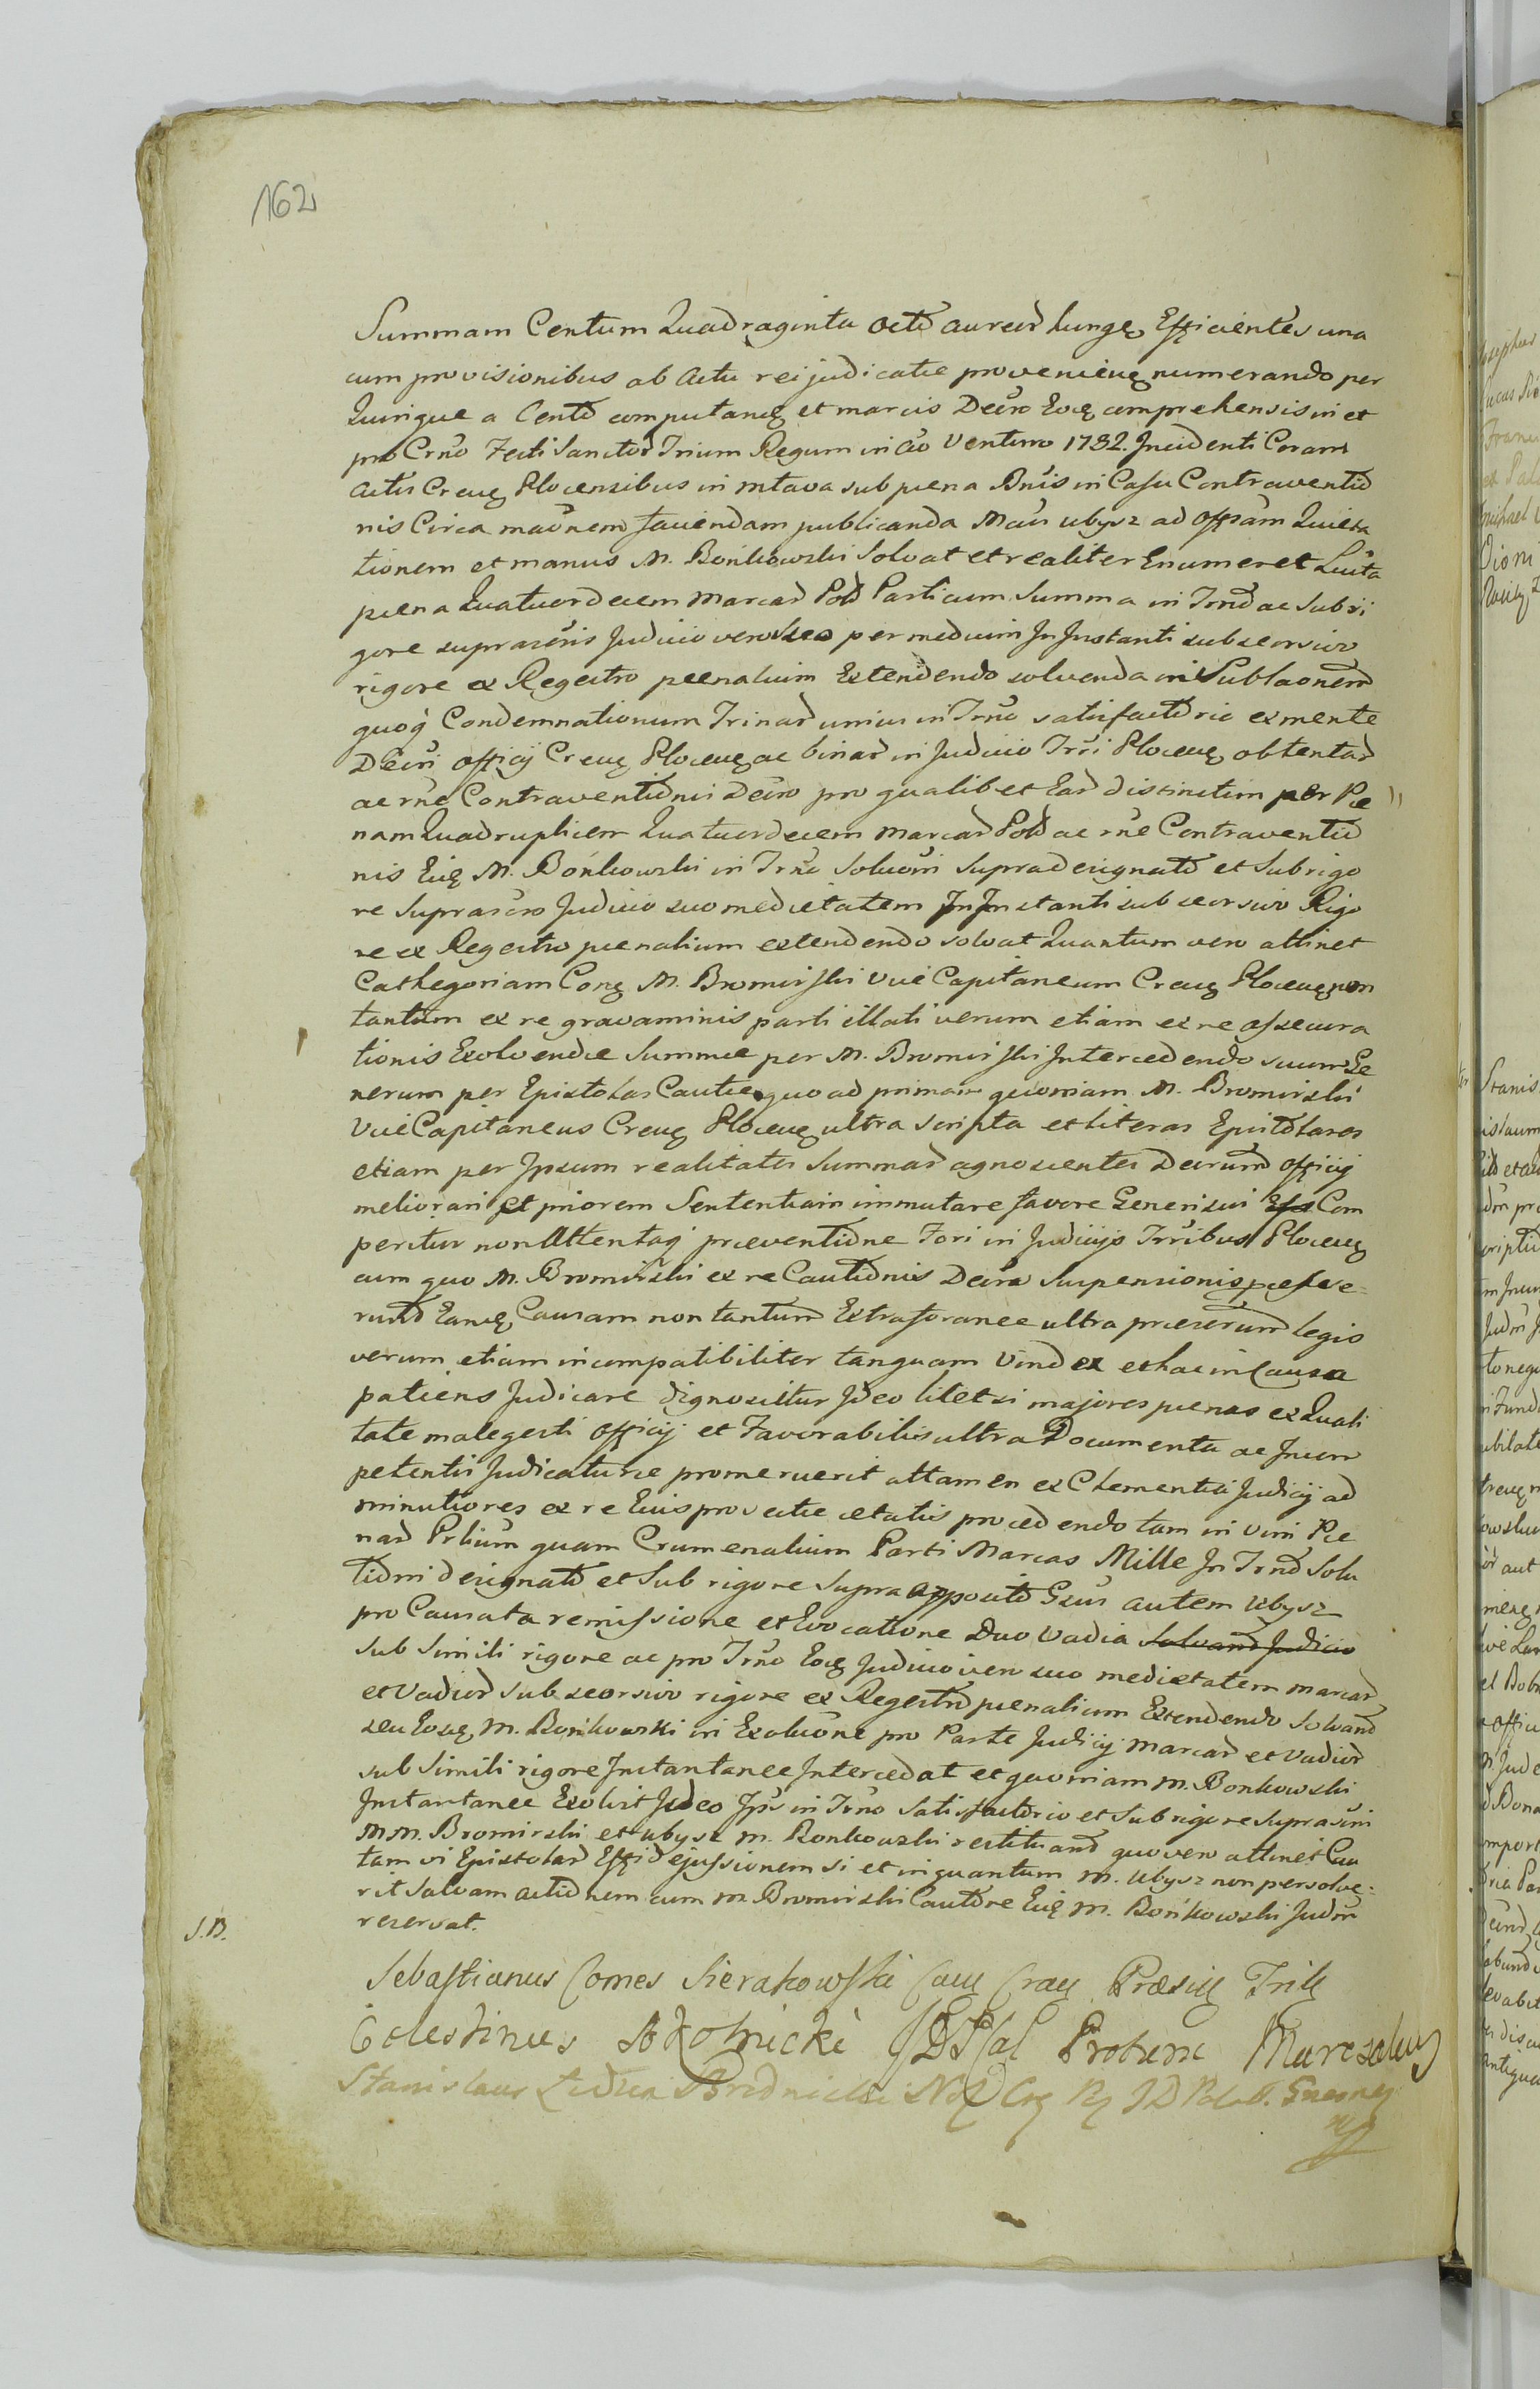 162
Summam Centum Quadraginta Octo aureor hung Efficientes una
cum provisionibus ab actu rei judicatæ provenien numerando per
Quinque a Cento computand et marcis Decro Eod comprehensis in et
pro Crno Festi Sanctor Trium Regum in Ao Venturo 1782. Incidenti Coram
Actis Cren Plocensibus in Mtava sub pœna Bnis in Casu Contraventio
nis Circa maonem faciendam publicanda Mcus Ubysz ad offsam Quieta
tionem et manus M. Bońkowski Solvat et realiter Enumeret Luita
pœna Quatuordecem Marcar Pol Parti cum Summa in Trno ac Sub ri
gore suprascris Judicio vero suo per medium In Instanti sub seorsivo
rigore ex Regestro pœnalium Extendendo solvenda in Sublaonem
quoq Condemnationum Trinar unius in Trno satisfactorio ex mente
Decri Officij Cren Plocen ac binar in Judicio Trri Plocen obtentar
ac rne Contraventionis Decro pro qualibet Ear distinctim per Pœ
nam Quadruplicem Quatuordecem Marcar Pol ac rne Contraventio
nis Eid M. Bońkowski in Trno Soluoni Supradesignato et Sub rigo
re Suprascro Judicio suo medietatem In Instanti sub seorsivo Rigo
re ex Regestro pœnalium extendendo solvat Quantum vero attinet
Cathegoriam Con M. Bromirski Vice Capitaneum Cren Plocen non
tantum ex re gravaminis parti illati verum etiam ex re assecura
tionis Exolvendæ Summæ per M. Bromirski Intercedendo suum Ge
nerum per Epistolas Cautæ quo ad primam quoniam M. Bromirski
Vice Capitaneus Cren Plocen ultra scripta et literas Epistolares
etiam per Ipsum realitates Summar agnoscentes Decrum Officij
meliorari et priorem Sententiam immutare favore Generi sui Com
peritur non Attentaq præventione Fori in Judicijs Trribus Plocen
cum quo M. Bromirski ex re Cautionis Decra Suspensionis
Eand Causam non tantum Extraforanee ultra legis
verum etiam incompatibiliter tanquam Vindex et hac in Causa
patiens Judicare dignoscitur Ideo licet si majores pœnas ex Quali
tate malegesti Officij et Favorabilis ultra Documenta ac Incom
petentis Judicaturæ promeruerit attamen ex Clementia Judicij ad
minutiores ex re Eius provectæ ætatis procedendo tam in vim Pœ
nar Prlium quam Crumenalium Parti Marcas Mille In Trno Solu
tioni designato et Sub rigore Supra apposito Gsus autem Ubysz
pro Causata remissione et Evocatione Duo Vadia Solvand Judicio
sub Simili rigore ac pro Trno Eod Judicio vero suo medietatem marcar
et Vadior sub seorsivo rigore ex Regestro pœnalium Extendendo Solvand
seu Eosd M. Bońkowski in Exoluone pro Parte Judicij Marcar et Vadior
sub Simili rigore Instantanee Intercedat et quoniam M. Bonkowski
Instantanee Exolvit Ideo Ipsi in Trno Satisfactorio et Sub rigore Suprascri
MM. Bromirski et Ubysz M. Bonkowski restituand quo vero attinet Cau
tam vi Epistolar Effidejussionem si et in quantum M. Ubysz non persolve:
rit salvam actionem cum M. Bromirski Cautore Eid M. Bońkowski Judm
reservat.
J.B.
Sebastianus Comes Sierakowski Præsid
Celestinus Sokolnicki
Stanislaus Brodnicki